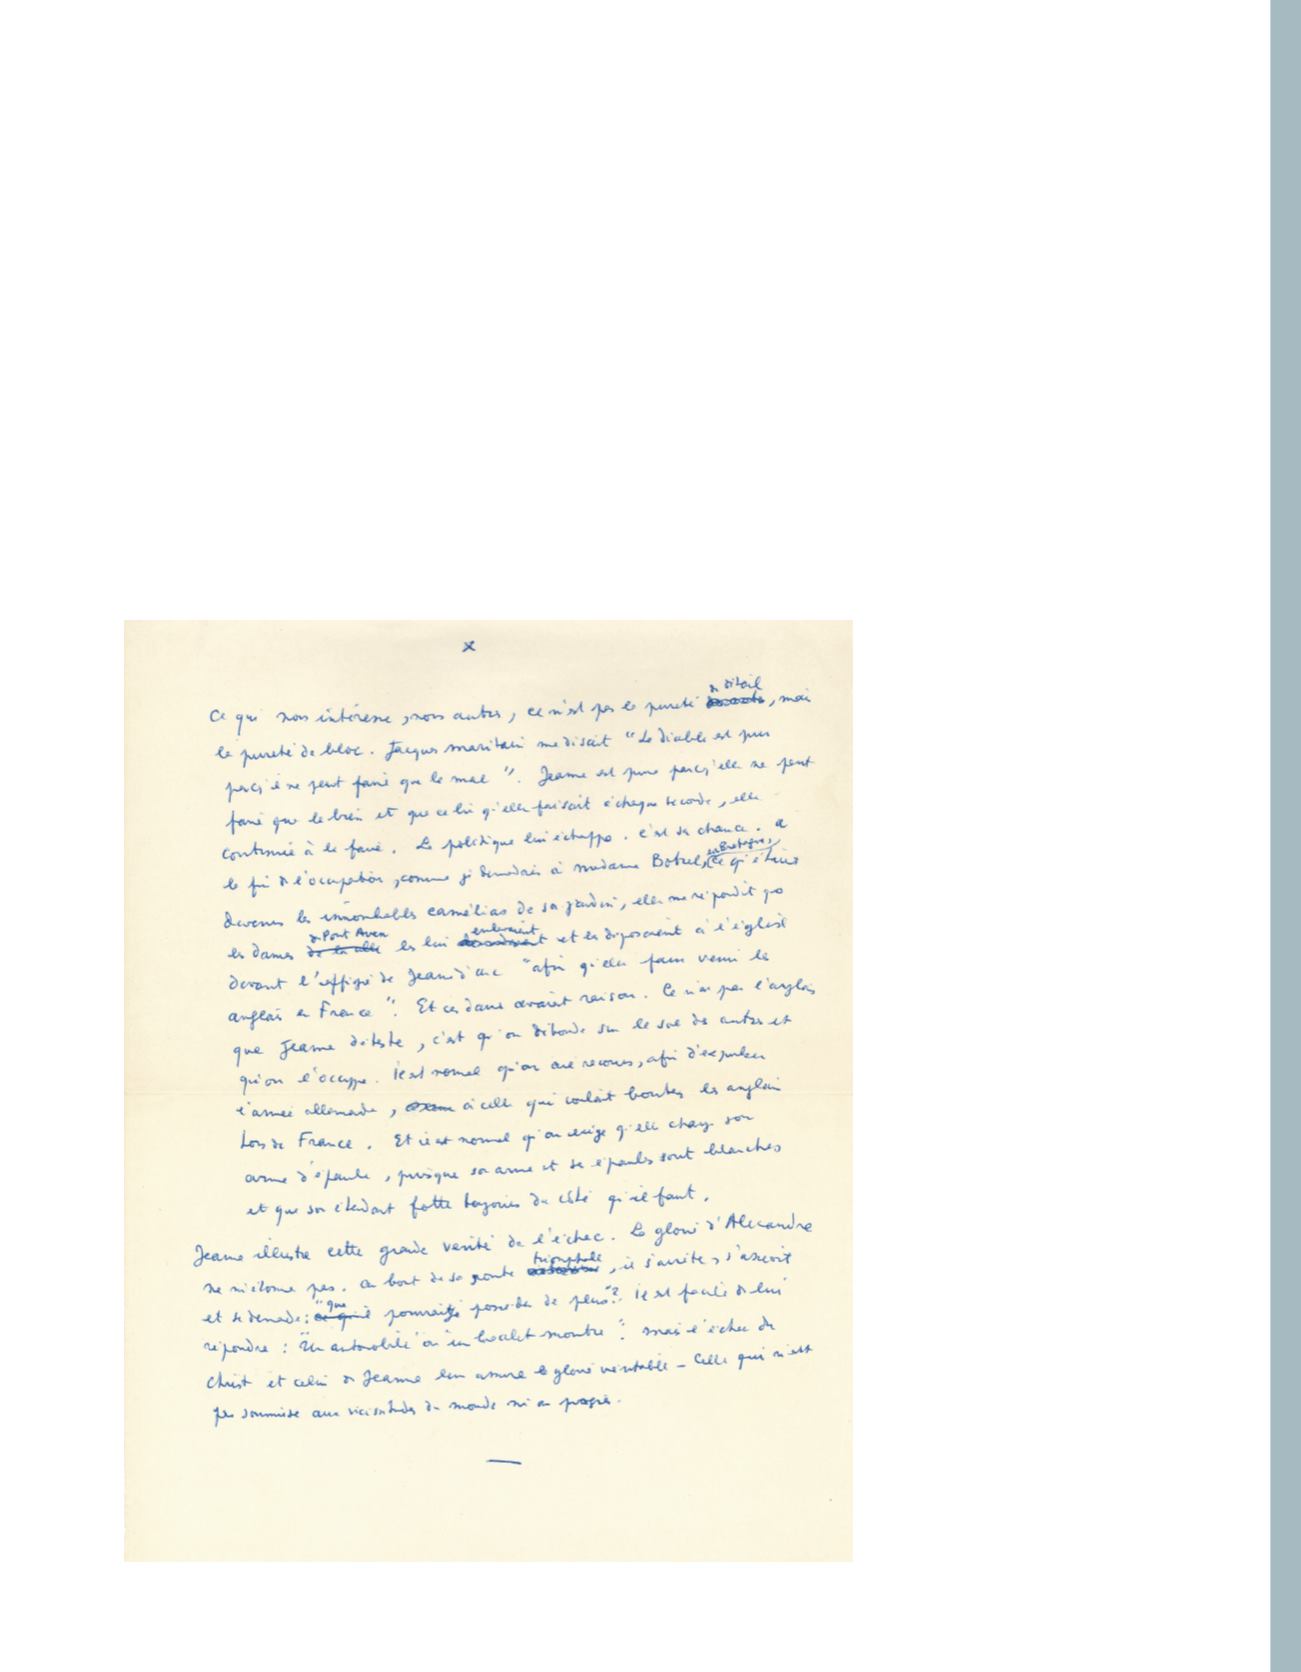 x
de détail
Ce qui nous intéresse, nous autres, ce n'est pas la pureté , mais
la pureté de bloc. Jacques Maritain me disait "Le diable est pur
parcqu'il ne peut faire que le mal". Jeanne est pure parcqu'elle ne peut
faire que le bien et que celui qu'elle faisait à chaque seconde, elle
continue à le faire. La politique lui échappe. C'est sa chance. A
en Bretagne,
la fin de l'occupation, comme je demandais à madame Botrel, ce qu'étaient
devenus les innombrables camélias de son jardin, elle me répondit que
de Pont Aven enlevaient
les dames de la ville les lui et les disposaient à l'église
devant l'effigie de Jeanne d'arc "afin qu'elle fasse venir les
anglais en France". Et ces dames avaient raison. Ce n'est pas l'anglais
que Jeanne déteste, c'est qu'on déborde sur le sol des autres et
qu'on l'occupe. Il est normal qu'on ait recours, afin d'expulser
l'armée allemande, à celle qui voulait bouter les anglais
hors de France. Et il est normal qu'on exige qu'elle change son
arme d'épaule, puisque son arme et ses épaules sont blanches
et que son étendart flotte toujours du côté qu'il faut.
Jeanne illustre cette grande vérité de l'échec. La gloire d'Alexandre
triomphale
ne m'étonne pas. Au bout de sa route , il s'arrête, s'asseoit
"que
et se demande: ce qu'il pourrais-je posséder de plus"? Il est facile de lui
répondre : "Un automobile ou un bracelet montre". Mais l'échec du
Christ et celui de Jeanne leur assure la gloire véritable - Celle qui n'est
pas soumise aux vicissitudes du monde ni au progrès.